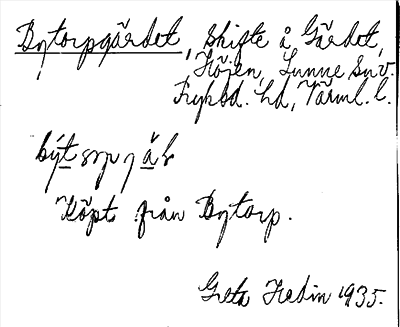 Bytorpgärdet, skifte å Gärdet,
Höjen, Sunne Snv.
Fryksd. hd, Värml. l.
Köpt från Bytorp.
Greta Hedin 1935.